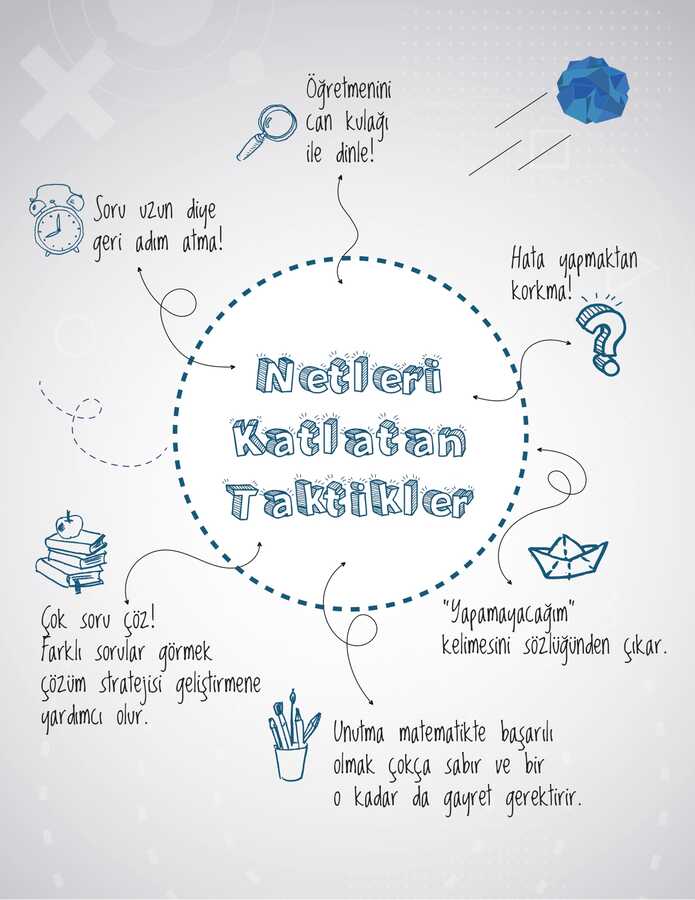 Öğretmenini
can kulağı
ile dinle!
Soru uzun diye
geri adım atma!
Hata yapmaktan
korkma!
Netleri
Katlatan
Taktikler
Çok soru çöz!
Farklı sorular görmek
çözüm stratejisi geliştirmene
yardımcı olur.
"Yapamayacağım"
kelimesini sözlüğünden çıkar.
Unutma matematikte başarılı
olmak çokça sabır ve bir
o kadar da gayret gerektirir.